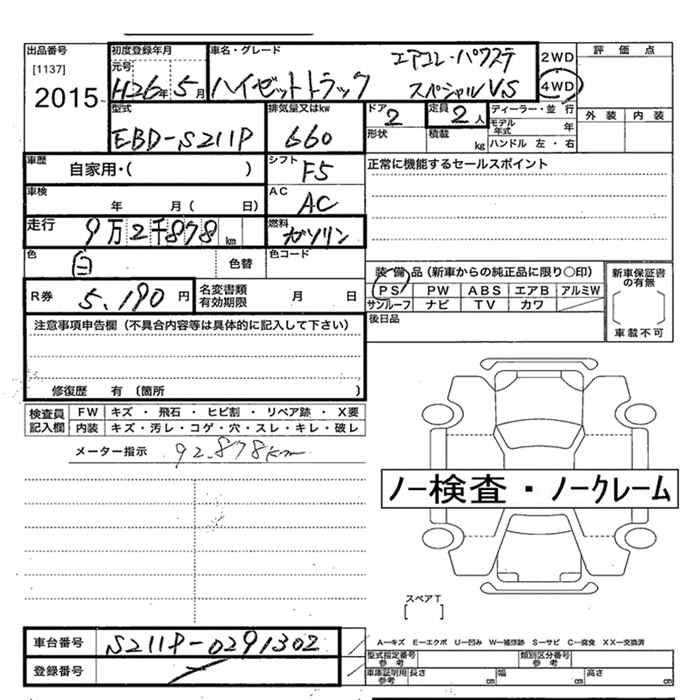 出品番号 初度登録年月 車名・グレード エアコン・パワステ 2WD 評価点
[1137] 元号 H26年5月 ハイゼットトラック スペシャルVS 4WD
2015 型式 排気量又はkw ドア 2 定員 2人 ディーラー・並行 外装 内装
EBD-S211P 660 形状 積載 kg モデル年式 年
ハンドル 左・右
車歴 自家用・( ) シフト F5 正常に機能するセールスポイント
車検 年 月( 日) AC AC
走行 9万2千878km 燃料 ガソリン
色 白 色替 色コード 装備品(新車からの純正品に限り○印) 新車保証書の有無
PS PW ABS エアB アルミW
R券 5,190円 名変書類有効期限 月 日 サンルーフ ナビ TV カワ [ ]
注意事項申告欄(不具合内容等は具体的に記入して下さい) 後日品 車載不可
修復歴 有 (箇所 )
検査員記入欄 FW キズ・飛石・ヒビ割・リペア跡・X要
内装 キズ・汚レ・コゲ・穴・スレ・キレ・破レ
メーター指示 92.878km
ノー検査・ノークレーム
スペアT
[ ]
車台番号 S211P-0291302 A―キズ E―エクボ U―凹み W―補修跡 S―サビ C―腐食 XX―交換済
型式指定番号 参考 類別区分番号 参考
登録番号 車庫証明用 参考 長さ cm 幅 cm 高さ cm